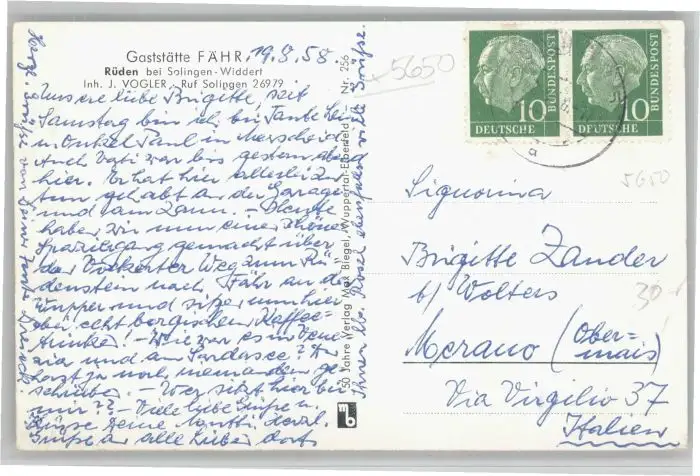 Gaststätte FÄHR, 19.5.58.
Rüden bei Solingen-Widdert
Inh. J. VOGLER, Ruf Solingen 26979
Unsere liebe Brigitte, seit
Samstag bin ich bei Tante
u. Onkel Paul in Merscheid
Auch Vati war bis gestern abend
hier. Er hat hier allerlei zu
tun gehabt an der Garage
und am Zaun. – Heute
haben wir nun einen schönen
Spaziergang gemacht über
der Vockerter Weg zum Rü-
denstein nach Fähr an der
Wupper und sitzen nun hier
bei echt bergischem Kaffee-
trinken! – Wie war es in Vene-
zia und am Gardasee? Du
hast ja noch niemandem ge-
schrieben. – Wer sitzt hier bei
mir?? – Viele liebe Grüße u.
Küsse Deine Mutti. Herzl.
Grüße an alle Lieben dort
Herzl. Grüße von Deiner Tante
Ihnen lb. Rosel ebenfalls viele Grüße.
150 Jahre Verlag Max Biegel, Wuppertal-Elberfeld Nr. 256
mb
5650
10 DEUTSCHE BUNDESPOST
10 DEUTSCHE BUNDESPOST
a
5650
Signorina
Brigitte Zander
b/ Wolters
30-
Merano (Ober=
mais)
Via Virgilio 37
Italien